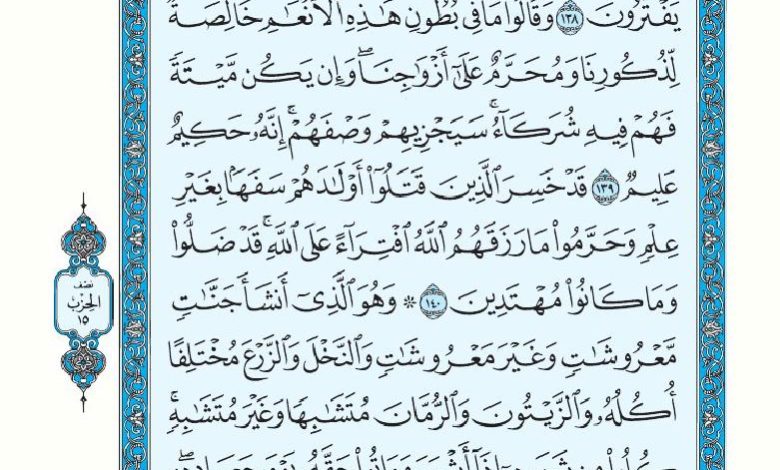 يَفْتَرُونَ ١٣٨ وَقَالُوا۟ مَا فِى بُطُونِ هَـٰذِهِ ٱلْأَنْعَـٰمِ خَالِصَةٌ
لِّذُكُورِنَا وَمُحَرَّمٌ عَلَىٰٓ أَزْوَٰجِنَا ۖ وَإِن يَكُن مَّيْتَةً
فَهُمْ فِيهِ شُرَكَآءُ ۚ سَيَجْزِيهِمْ وَصْفَهُمْ ۚ إِنَّهُۥ حَكِيمٌ
عَلِيمٌ ١٣٩ قَدْ خَسِرَ ٱلَّذِينَ قَتَلُوٓا۟ أَوْلَـٰدَهُمْ سَفَهًۢا بِغَيْرِ
عِلْمٍ وَحَرَّمُوا۟ مَا رَزَقَهُمُ ٱللَّهُ ٱفْتِرَآءً عَلَى ٱللَّهِ ۚ قَدْ ضَلُّوا۟
وَمَا كَانُوا۟ مُهْتَدِينَ ١٤٠ ۞ وَهُوَ ٱلَّذِىٓ أَنشَأَ جَنَّـٰتٍ
مَّعْرُوشَـٰتٍ وَغَيْرَ مَعْرُوشَـٰتٍ وَٱلنَّخْلَ وَٱلزَّرْعَ مُخْتَلِفًا
أُكُلُهُۥ وَٱلزَّيْتُونَ وَٱلرُّمَّانَ مُتَشَـٰبِهًا وَغَيْرَ مُتَشَـٰبِهٍ ۚ
نصف
الحزب
١٥